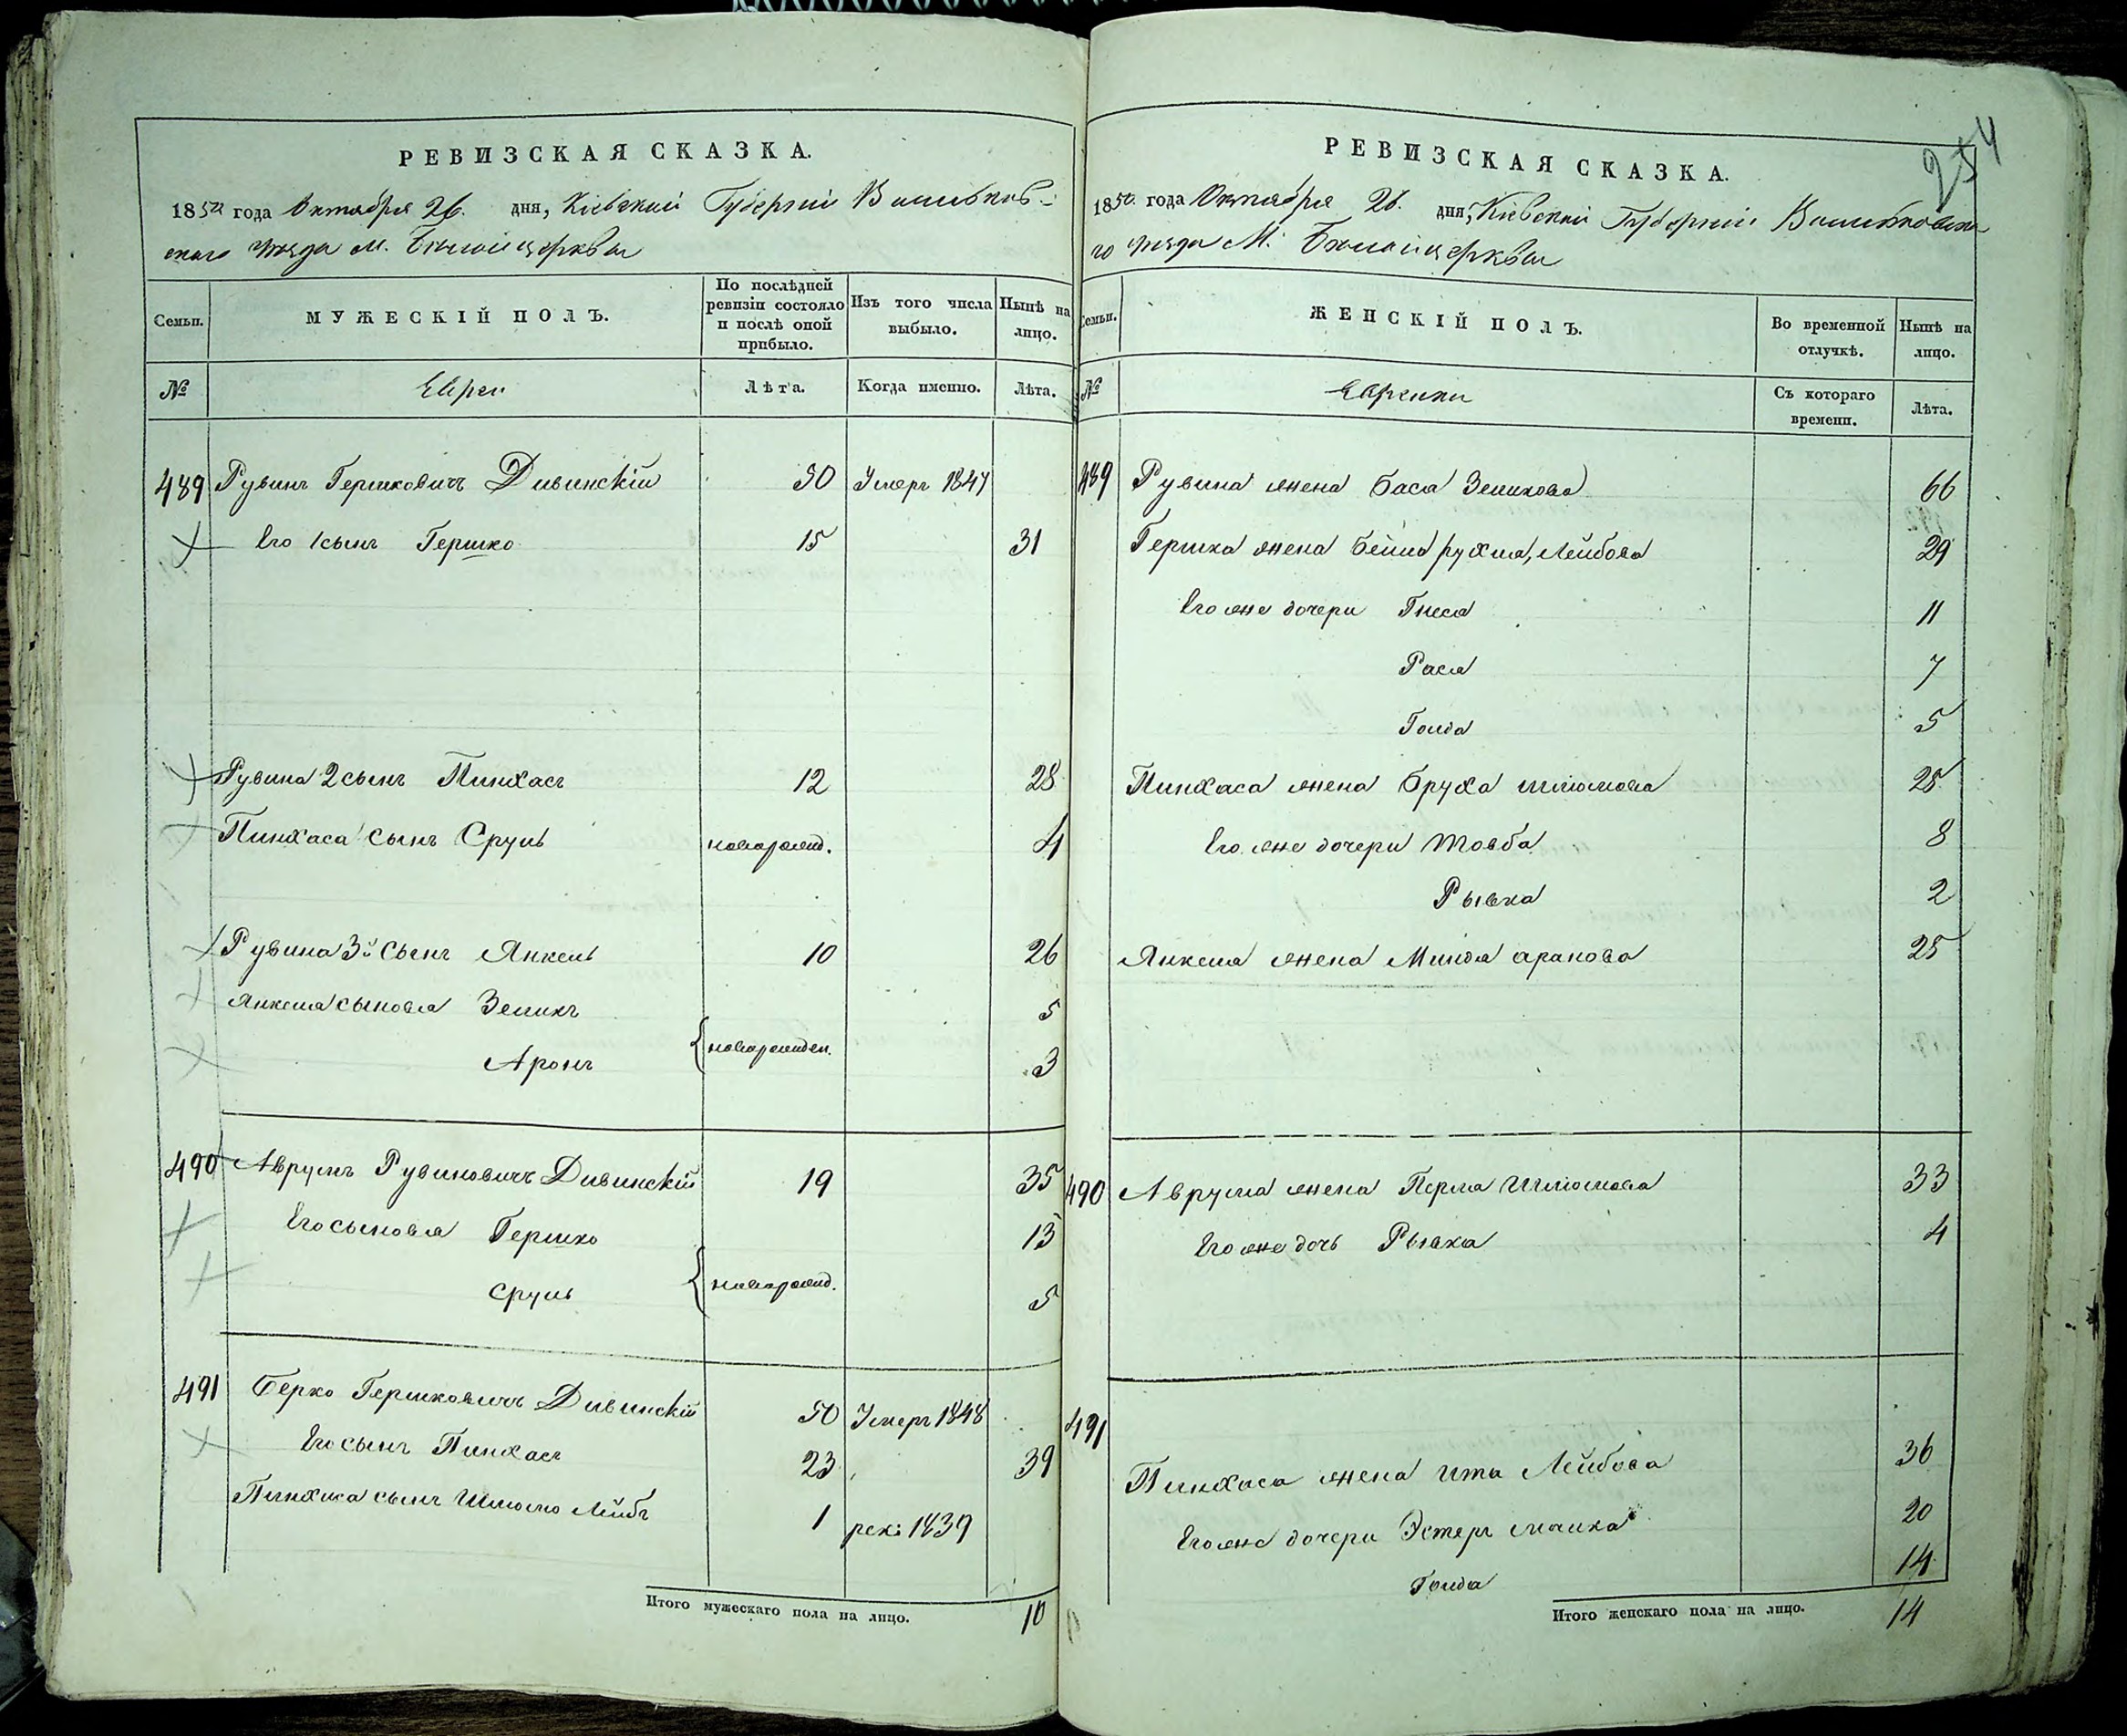 РЕВИЗСКАЯ СКАЗКА.
1850 года Октября 26. дня, Кіевской Губерніи Васильков-
скаго уѣзда м. Бѣлойцеркви
Семьи.
МУЖЕСКІЙ ПОЛЪ.
По послѣдней ревизіи состояло и послѣ оной прибыло.
Изъ того числа выбыло.
Нынѣ на лицо.
№
Евреи
Лѣта.
Когда именно.
Лѣта.
489 Рувинъ Гершковичъ Дивинскій 50 Умеръ 1847
Его 1 сынъ Гершко 15 31
Рувина 2 сынъ Пинхасъ 12 28
Пинхаса сынъ Сруль новорожд. 4
Рувина 3й сынъ Янкель 10 26
Янкеля сыновья Зеликъ 5
новорожден.
Аронъ 3
490 Аврумъ Рувиновичъ Дивинскій 19 35
Его сыновья Гершко 13
новорожд.
Сруль 5
491 Берко Гершковичъ Дивинскій 50 Умеръ 1848
Его сынъ Пинхасъ 23 39
Пинхаса сынъ Шлиомо Лейбъ 1 рек: 1839
Итого мужескаго пола на лицо. 10
254
РЕВИЗСКАЯ СКАЗКА.
1850 года Октября 26. дня, Кіевской Губерніи Васильковска
го уѣзда М. Бѣлойцеркви
Семьи.
ЖЕНСКІЙ ПОЛЪ.
Во временной отлучкѣ.
Нынѣ на лицо.
№
Еврейки
Съ котораго времени.
Лѣта.
489 Рувина жена Бася Зеликова 66
Гершка жена Бейла рухля, Лейбова 29
Его же дочери Гнеся 11
Рася 7
Голда 5
Пинхаса жена Бруха Шлиомова 25
Его же дочери Товба 8
Рывка 2
Янкеля жена Миндя аронова 25
490 Аврума жена Перля Шлиомова 33
Его же дочь Рывка 4
491
Пинхаса жена Ита Лейбова 36
Его же дочери Эстеръ малка 20
Голда 14
Итого женскаго пола на лицо. 14